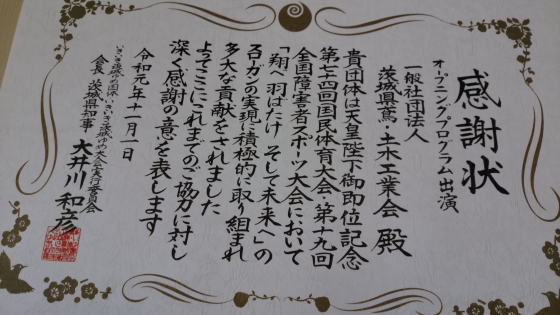 感謝状
オープニングプログラム出演
一般社団法人
茨城県鳶・土木工業会 殿
貴団体は天皇陛下御即位記念
第七十四回国民体育大会・第十九回
全国障害者スポーツ大会において
「翔べ 羽ばたけ そして未来へ」の
スローガンの実現に積極的に取り組まれ
多大な貢献をされました
よってここにこれまでのご協力に対し
深く感謝の意を表します
令和元年十一月一日
いきいき茨城ゆめ国体・いきいき茨城ゆめ大会実行委員会
会長 茨城県知事 大井川 和彦